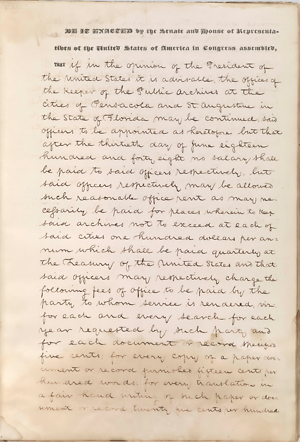 BE IT ENACTED by the Senate and House of Representa-
tives of the United States of America in Congress assembled,
THAT if in the opinion of the President of
the United States it is advisable, the offices of
the Keeper of the Public Archives at the
cities of Pensacola and St Augustine in
the State of Florida may be continued, said
officers to be appointed as heretofore but that
after the thirtieth day of June eighteen
hundred and forty eight no salary shall
be paid to said officers respectively, but
said officers respectively may be allowed
such reasonable office rent as may ne-
cessarily be paid for places wherein to keep
said archives not to exceed at each of
said cities one hundred dollars per an-
num which shall be paid quarterly at
the Treasury of the United States and that
said officers may respectively charge the
following fees of office to be paid by the
party to whom service is rendered, viz
for each and every search for each
year requested by such party and
for each document or record
five cents, for every copy of a paper doc-
ument or record furnished fifteen cents per
hundred words, for every translation in
a fair hand writing of such paper or docu-
ment or record twenty five cents per hundred